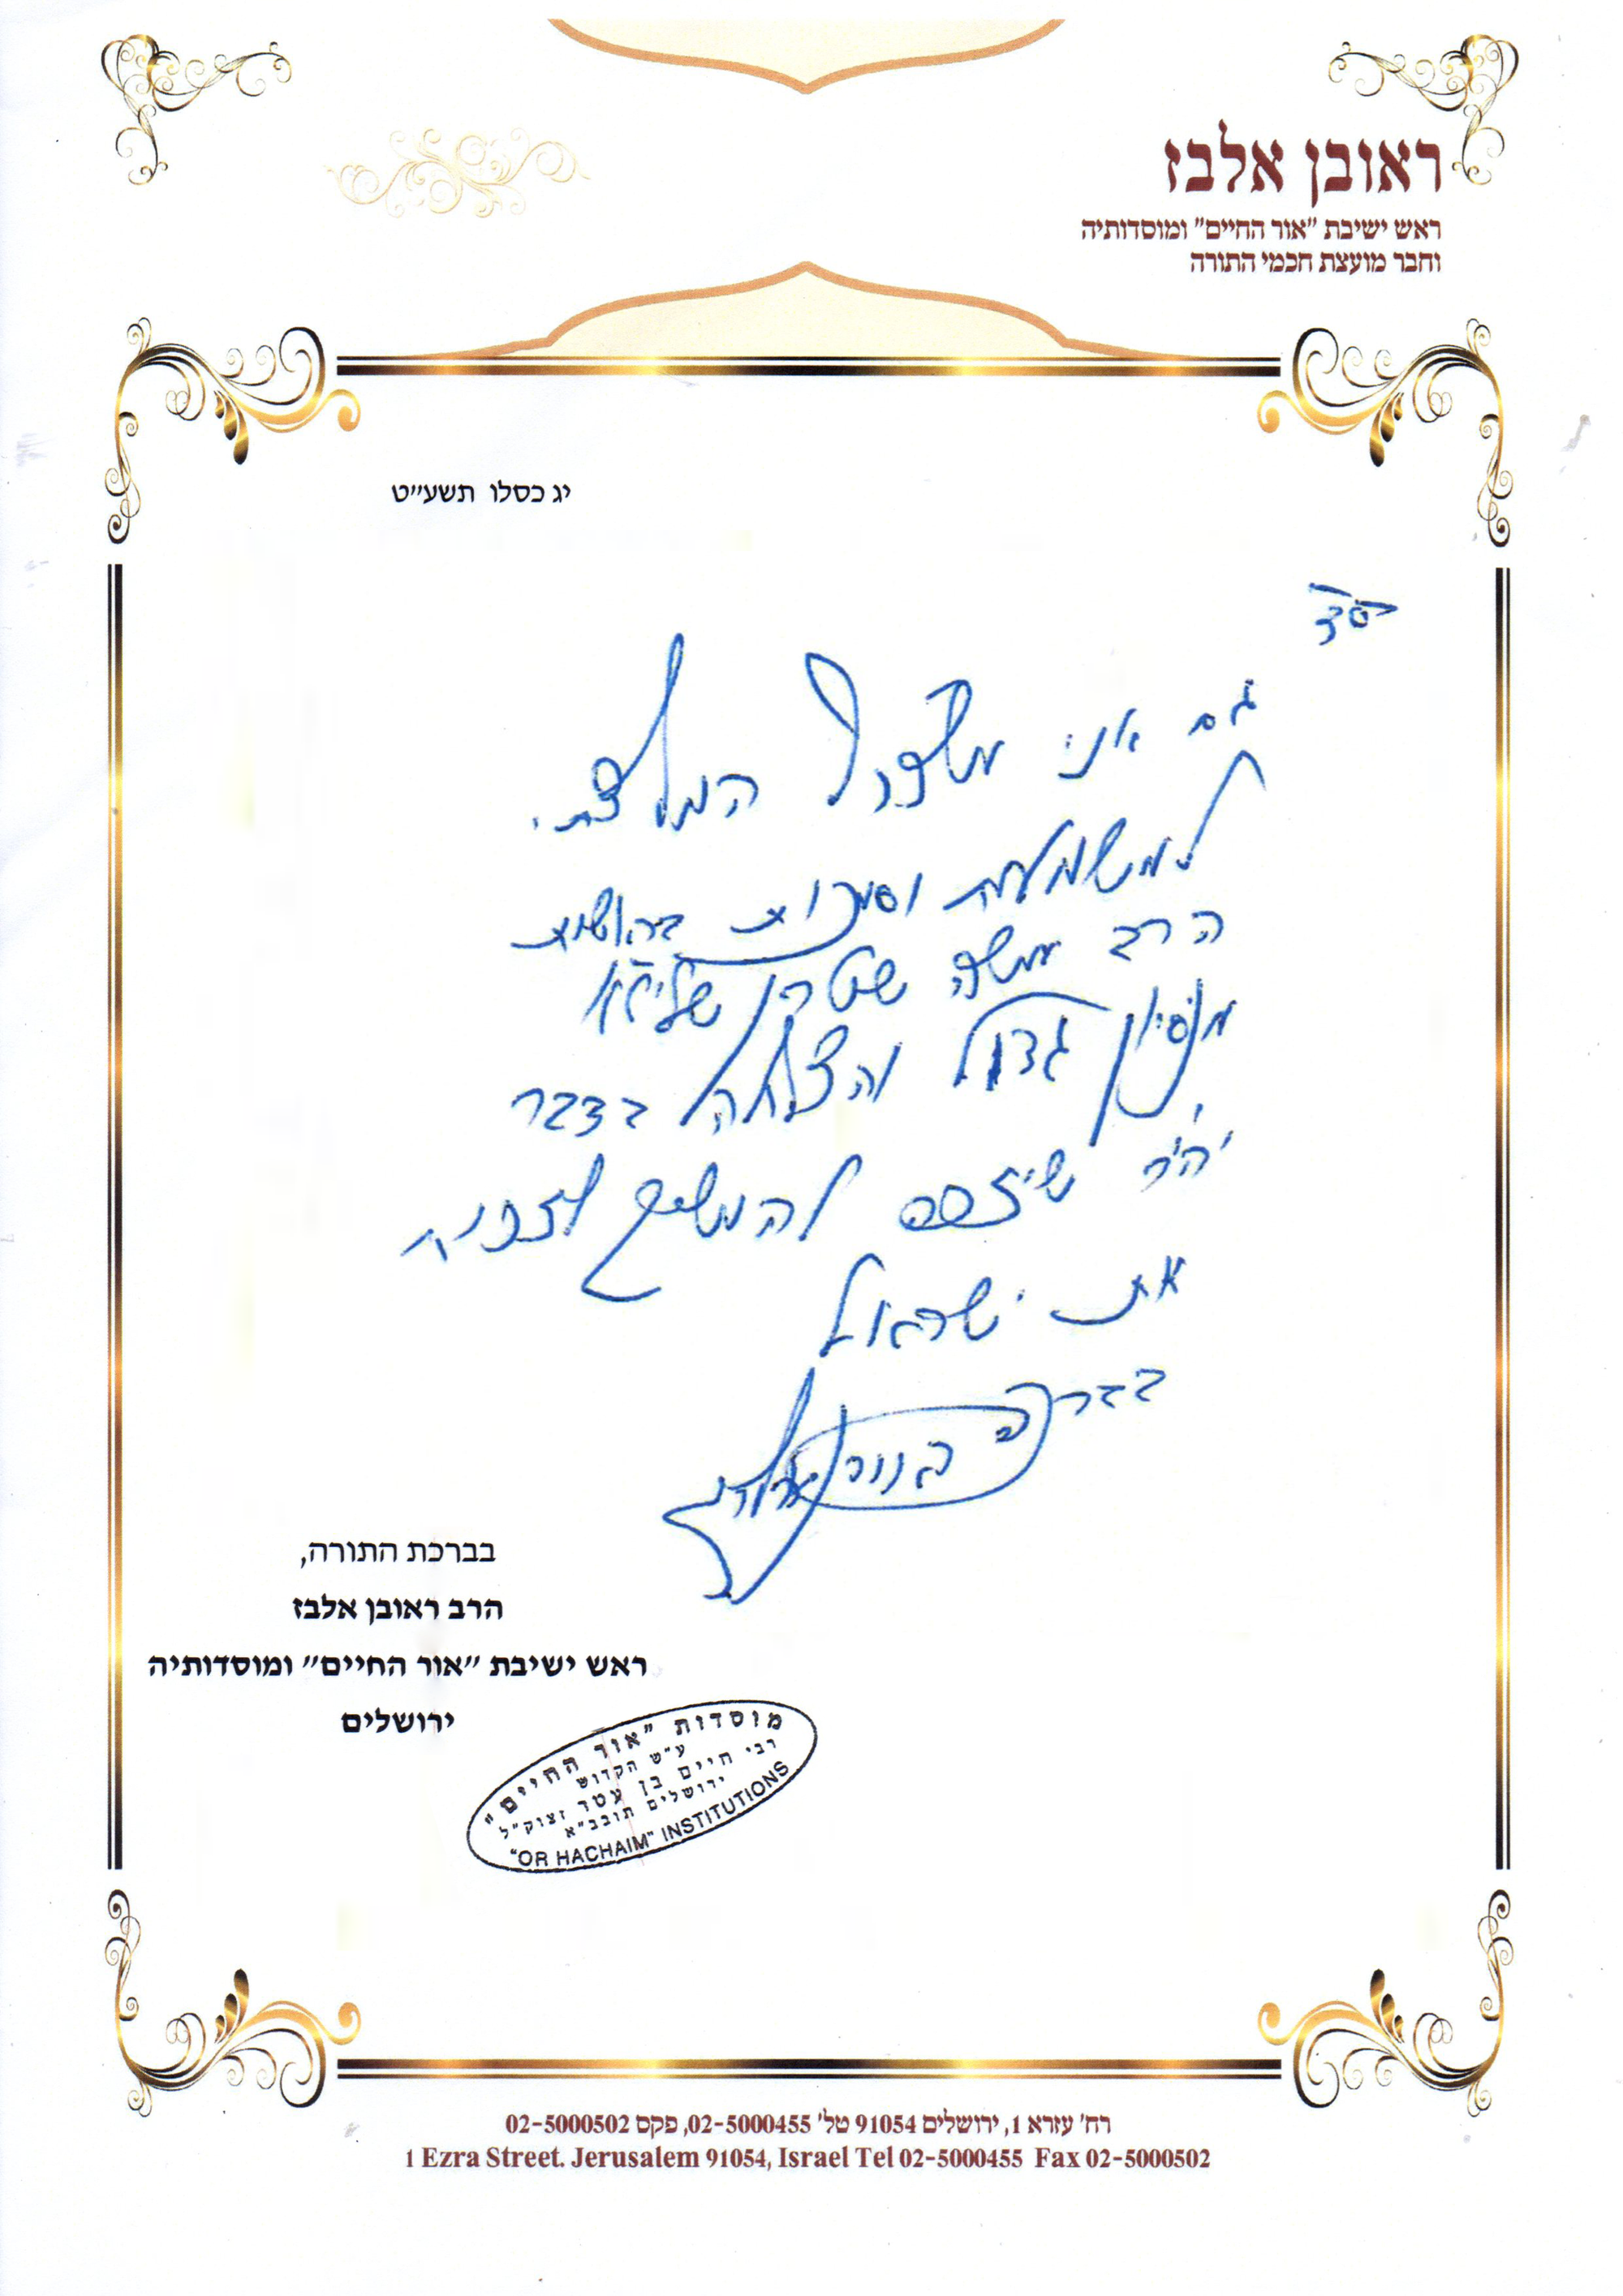 ראובן אלבז
ראש ישיבת "אור החיים" ומוסדותיה
וחבר מועצת חכמי התורה
יג כסלו תשע"ט
בס"ד
גם אני
למשמעת
הרב משה שטרן שליט"א
גדול והצלחה בדבר
יה"ר שיזכה להמשיך לזכות
את ישראל
בברכה
בברכת התורה,
הרב ראובן אלבז
ראש ישיבת "אור החיים" ומוסדותיה
ירושלים
מוסדות "אור החיים"
ע"ש הקדוש
רבי חיים בן עטר זצוק"ל
ירושלים תובב"א
"OR HACHAIM" INSTITUTIONS
רח' עזרא 1, ירושלים 91054 טל' 02-5000455, פקס 02-5000502
1 Ezra Street. Jerusalem 91054, Israel Tel 02-5000455 Fax 02-5000502